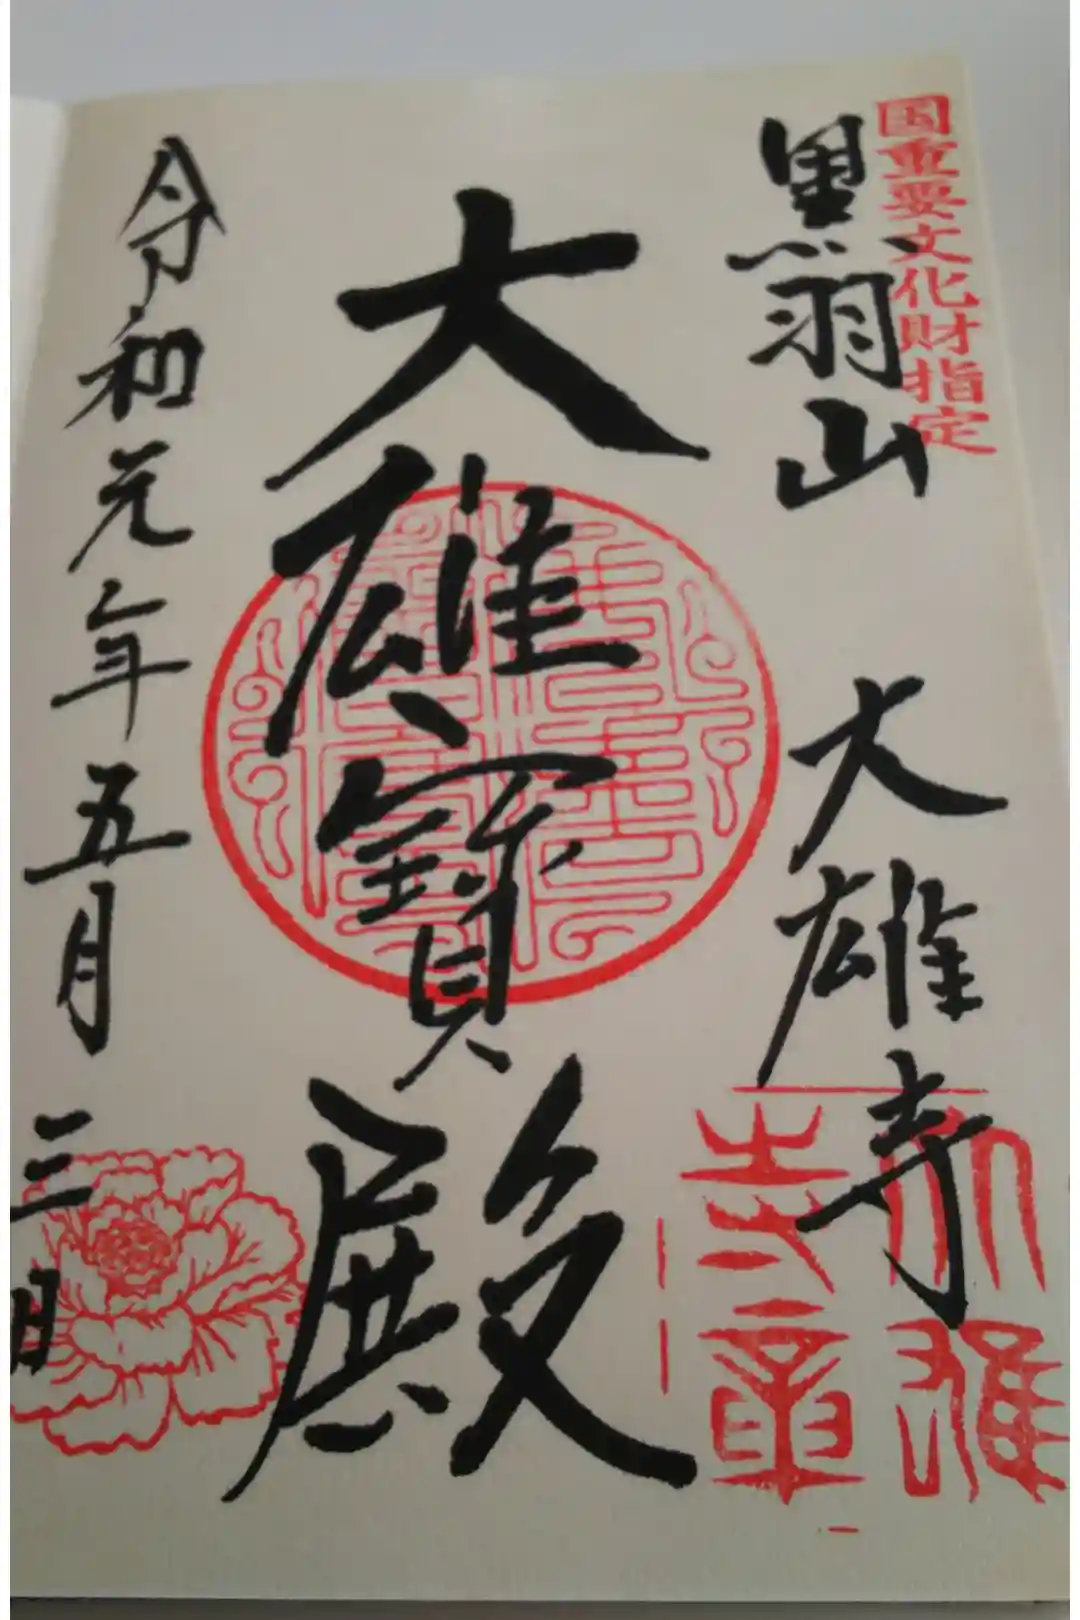 国重要文化財指定
黒羽山 大雄寺
大雄寶殿
令和元年五月三日
大雄
寺章